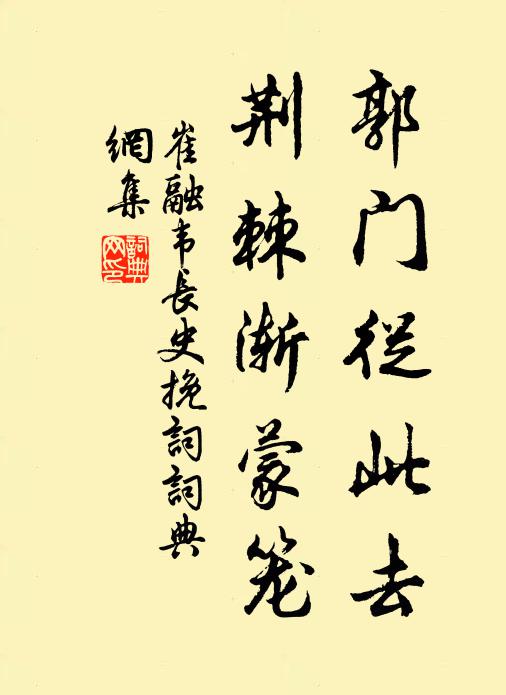 郭门從此去
荆棘渐蒙笼
崔融韦長史挽詞詞典
網集
詞典
网印